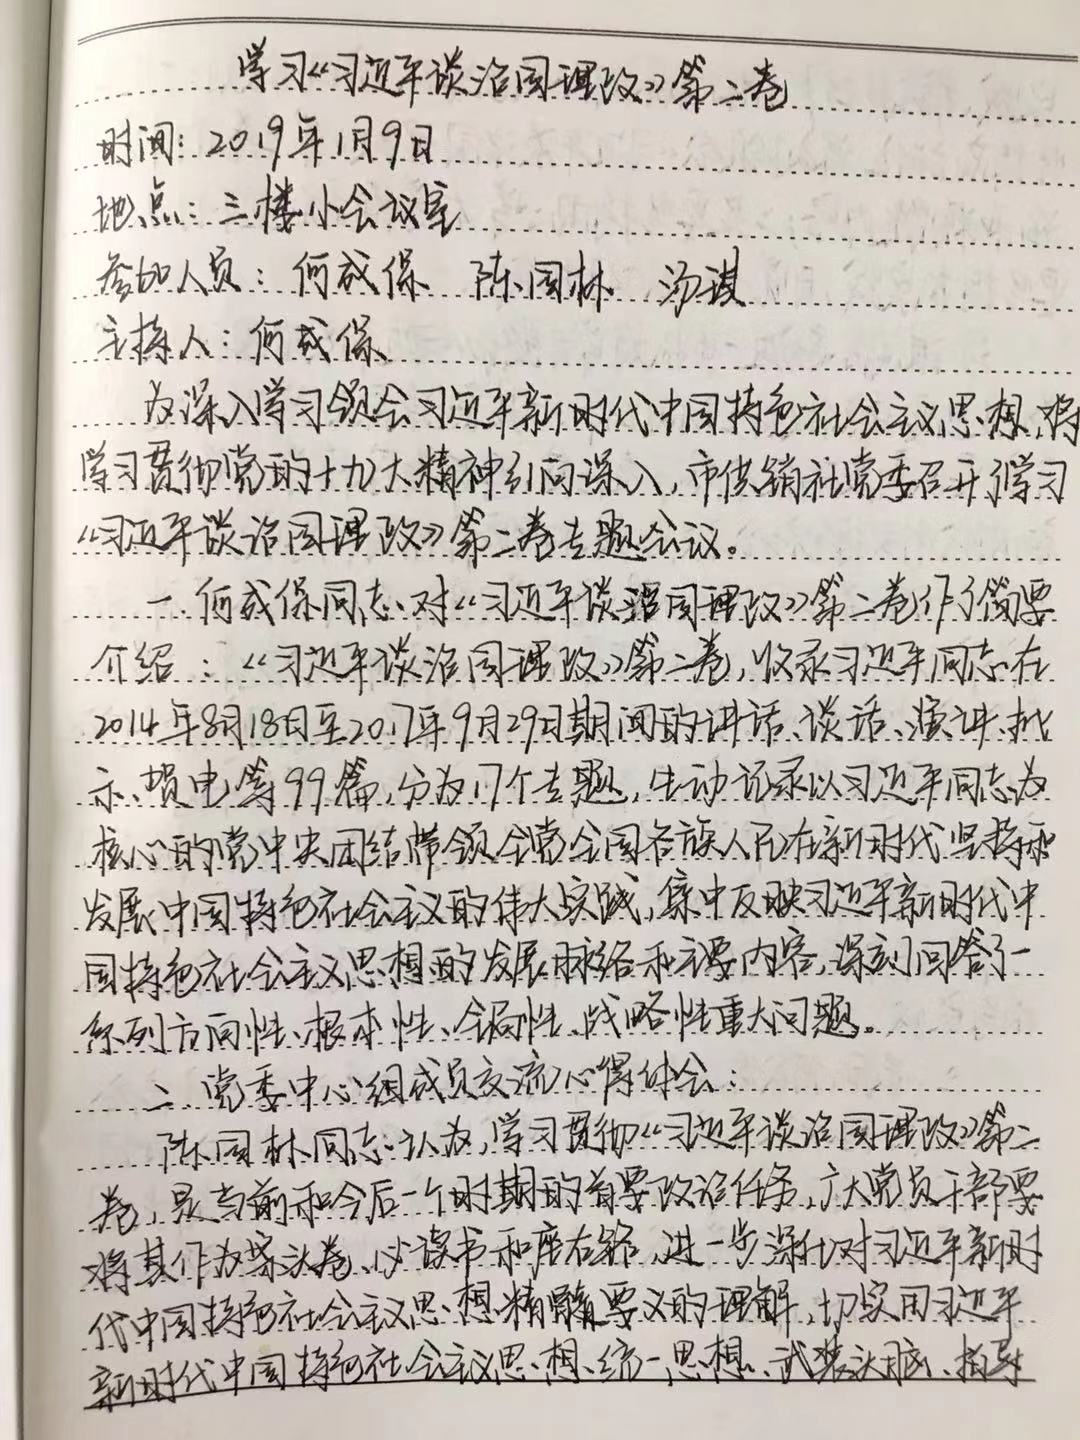 学习《习近平谈治国理政》第二卷
时间：2019年1月9日
地点：三楼小会议室
参加人员：何成保 陈国林 汤琪
主持人：何成保
为深入学习领会习近平新时代中国特色社会主义思想，将
学习贯彻党的十九大精神引向深入，市供销社党委召开了学习
《习近平谈治国理政》第二卷专题会议。
一、何成保同志对《习近平谈治国理政》第二卷作了简要
介绍：《习近平谈治国理政》第二卷，收录习近平同志在
2014年8月18日至2017年9月29日期间的讲话、谈话、演讲、批
示、贺电等99篇，分为17个专题，生动记录以习近平同志为
核心的党中央团结带领全党全国各族人民在新时代坚持和
发展中国特色社会主义的伟大实践，集中反映习近平新时代中
国特色社会主义思想的发展脉络和主要内容，深刻回答了一
系列方向性、根本性、全局性、战略性重大问题。
二、党委中心组成员交流心得体会：
陈国林同志认为，学习贯彻《习近平谈治国理政》第二
卷，是当前和今后一个时期的首要政治任务，广大党员干部要
将其作为案头卷、必读书和座右铭，进一步深化对习近平新时
代中国特色社会主义思想精髓要义的理解，切实用习近平
新时代中国特色社会主义思想统一思想、武装头脑、指导